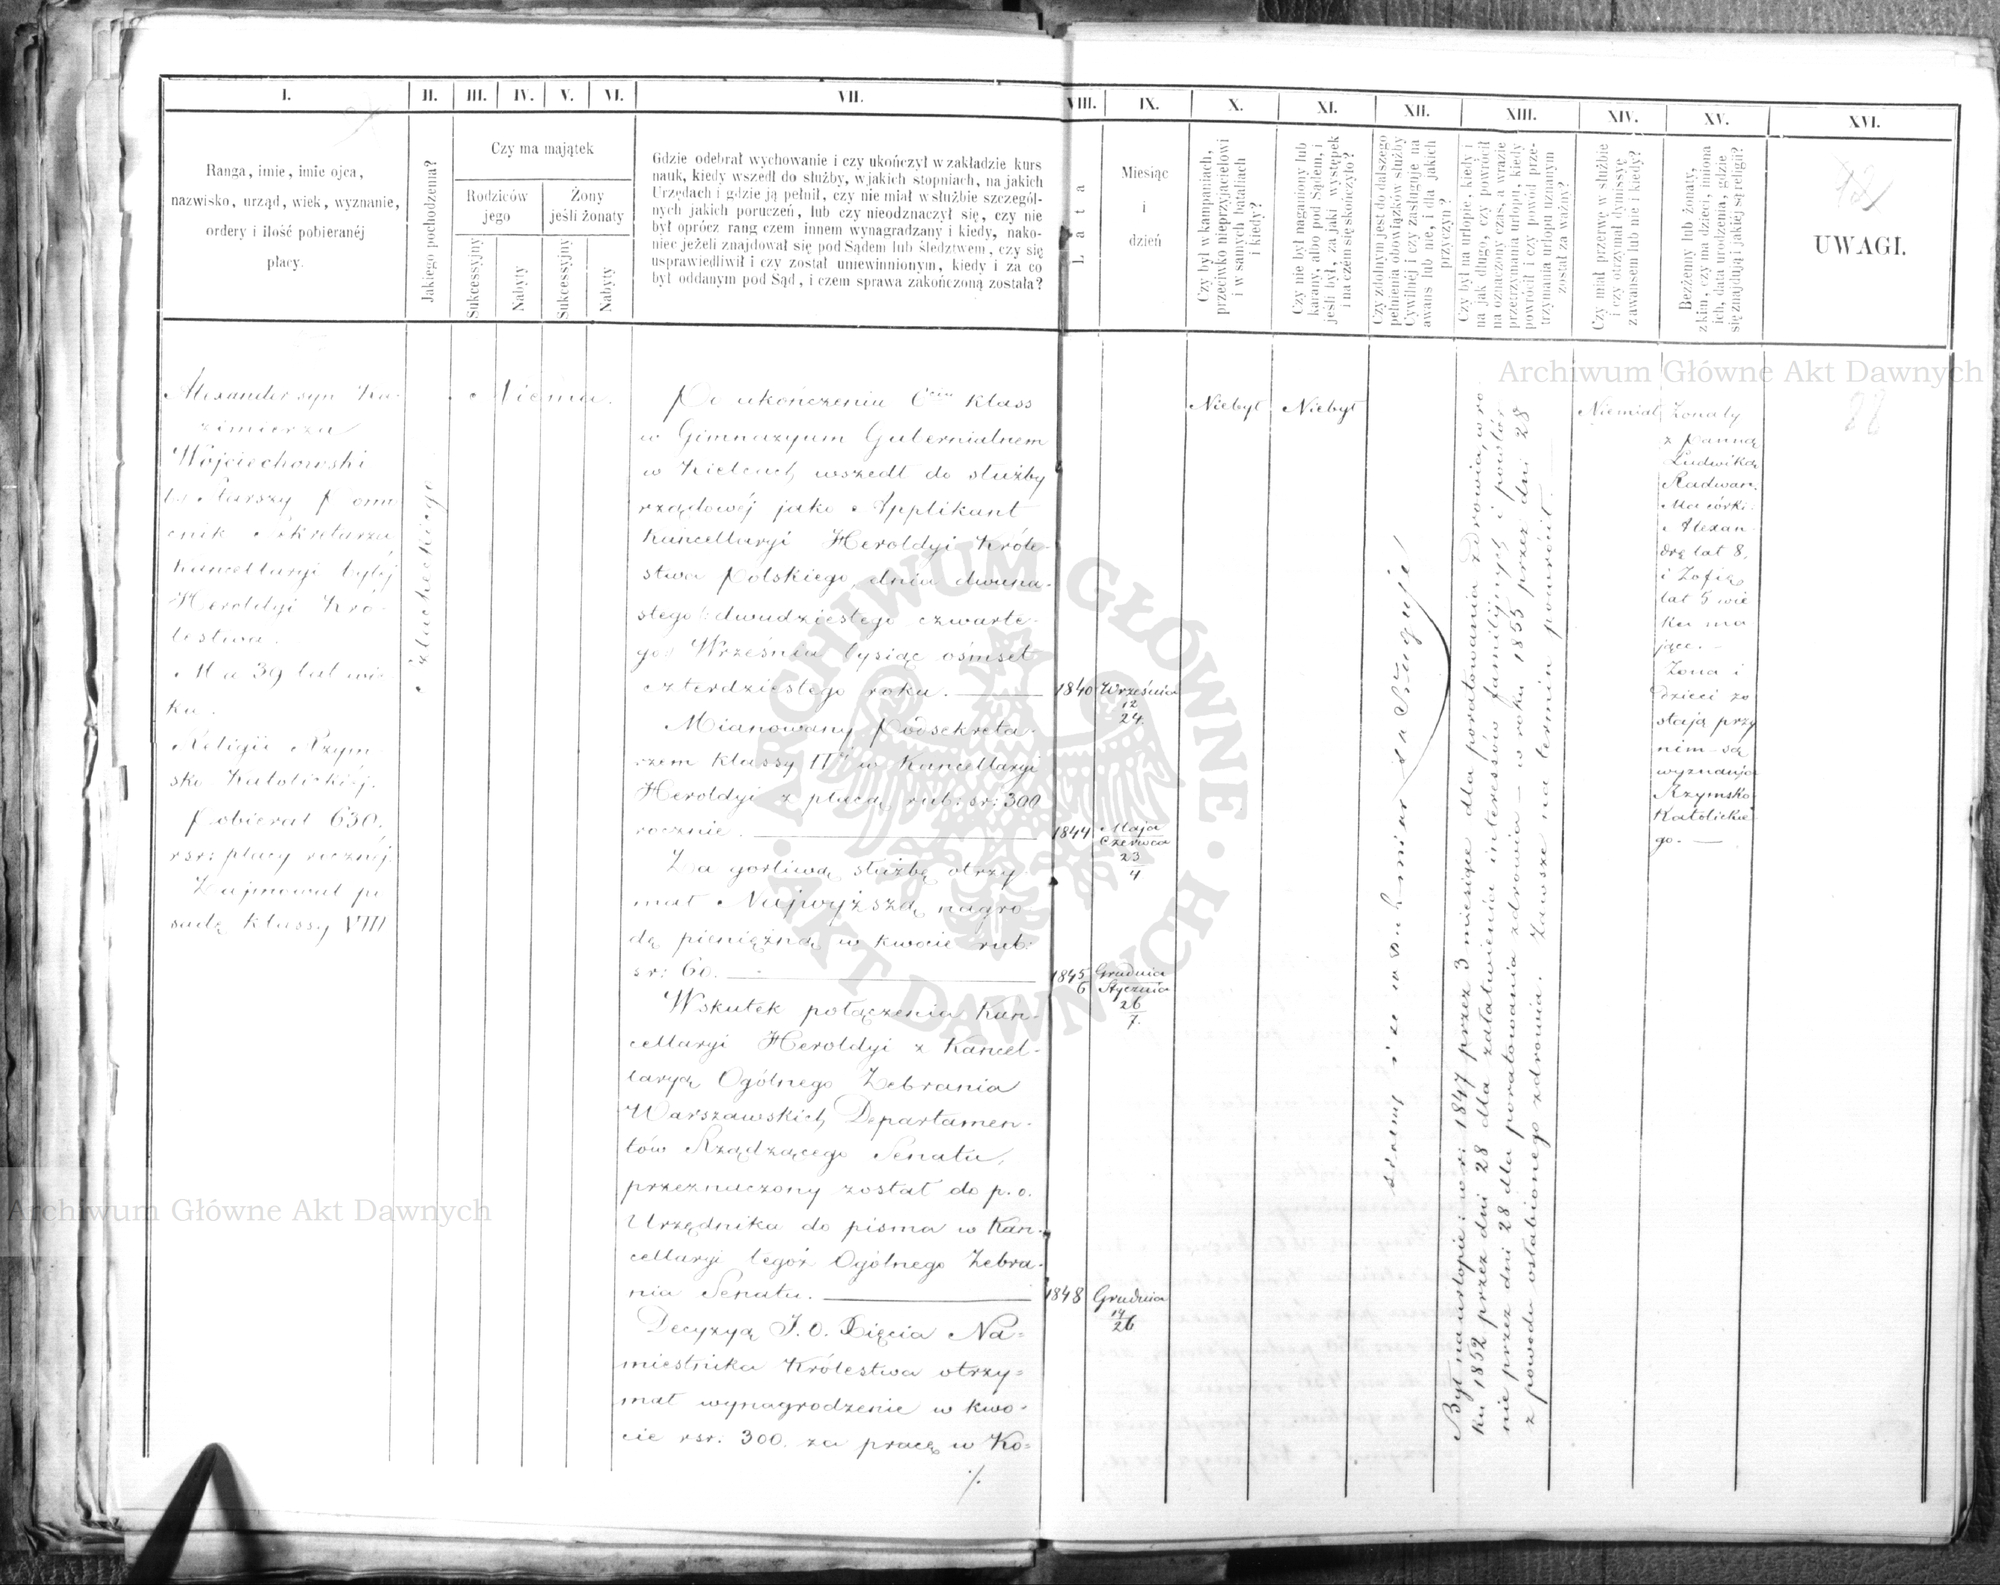 I.
Ranga, imie, imie ojca,
nazwisko, urząd, wiek, wyznanie,
ordery i ilość pobieranéj
płacy.
II.
Jakiego pochodzenia?
III. IV. V. VI.
Czy ma majątek
Rodziców
jego
Żony
jeśli żonaty
Sukcessyjny
Nabyty
Sukcessyjny
Nabyty
VII.
Gdzie odebrał wychowanie i czy ukończył w zakładzie kurs
nauk, kiedy wszedł do służby, w jakich stopniach, na jakich
Urzędach i gdzie ją pełnił, czy nie miał w służbie szczegól-
nych jakich poruczeń, lub czy nieodznaczył się, czy nie
był oprócz rang czem innem wynagradzany i kiedy, nako-
niec jeżeli znajdował się pod Sądem lub śledztwem, czy się
usprawiedliwił i czy został uniewinnionym, kiedy i za co
był oddanym pod Sąd, i czem sprawa zakończoną została?
VIII.
Lata
IX.
Miesiąc
i
dzień
X.
Czy był w kampaniach,
przeciwko nieprzyjacielowi
i w samych bataliach
i kiedy?
XI.
Czy nie był naganiony lub
karany, albo pod Sądem, i
jeśli był, za jaki występek
i na czem się skończyło?
XII.
Czy zdolnym jest do dalszego
pełnienia obowiązków służby
Cywilnéj i czy zasługuje na
awans lub nie, i dla jakich
przyczyn?
XIII.
Czy był na urlopie, kiedy i
na jak długo, czy powrócił
na oznaczony czas, a w razie
przetrzymania urlopu, kiedy
powrócił i czy powód prze-
trzymania urlopu uznanym
został za ważny?
XIV.
Czy miał przerwę w służbie
i czy otrzymał dymissyę
z awansem lub nie i kiedy?
XV.
Bezżenny lub żonaty,
z kim, czy ma dzieci, imiona
ich, data urodzenia, gdzie
się znajdują i jakiej są religii?
XVI.
UWAGI.
Alexander syn Ka-
zimierza
Wojciechowski
Starszy Pomo
cnik Sekretarza
Kancellaryi byłéj
Heroldyi Kró-
lestwa.
Ma 39 lat wie
ku.
Religii Rzym-
sko Katolickiéj.
Pobierał 630
rsr: płacy rocznéj
Zajmował po
sadę klassy VIII
Szlacheckiego
Niema.
Po ukończeniu 6ciu klass
w Gimnazyum Gubernialnem
w Kielcach wszedł do służby
rządowéj jako Applikant
Kancellaryi Heroldyi Króle-
stwa Polskiego, dnia dwuna-
stego: dwudziestego czwarte-
go: Września tysiąc ośmset
czterdziestego roku.
1840 Września
12
24.
Mianowany Podsekreta-
rzem klassy IIéj w Kancellaryi
Heroldyi z płacą rub: sr: 300
rocznie.
1844 Maja
Czerwca
23
4
Za gorliwą służbę otrzy
mał Najwyższą nagro-
dę pieniężną w kwocie rub:
sr: 60.
1845 Grudnia
6 Stycznia
26
7.
Wskutek połączenia Kan-
cellaryi Heroldyi z Kancel-
laryą Ogólnego Zebrania
Warszawskich Departamen-
tów Rządzącego Senatu,
przeznaczony został do p. o.
Urzędnika do pisma w Kan-
cellaryi tegoż Ogólnego Zebra-
nia Senatu.
1848 Grudnia
14
26
Decyzyą J. O. Xięcia Na-
miestnika Królestwa otrzy-
mał wynagrodzenie w kwo-
cie rsr. 300. za pracę w Ko-
./.
Niebył
Niebył
zasługuje!
Był na urlopie: w r: 1847 przez 3 miesiące dla poratowania zdrowia, w ro-
ku 1852 przez dni 28 dla załatwienia interessów familijnych i powtór-
nie przez dni 28 dla poratowania zdrowia - w roku 1853 przez dni 28
z powodu osłabionego zdrowia. Zawsze na termin powrócił.
Niemiał
Żonaty
z Panną
Ludwiką
Radwan.
Ma córki:
Alexan-
drę lat 8,
i Zofią
lat 5 wie
ku ma
jące. -
Żona i
dzieci zo
stają przy
nim są
wyznania
Rzymsko
Katolickie
go. -
22
Archiwum Główne Akt Dawnych
Archiwum Główne Akt Dawnych
ARCHIWUM GŁÓWNE
AKT DAWNYCH